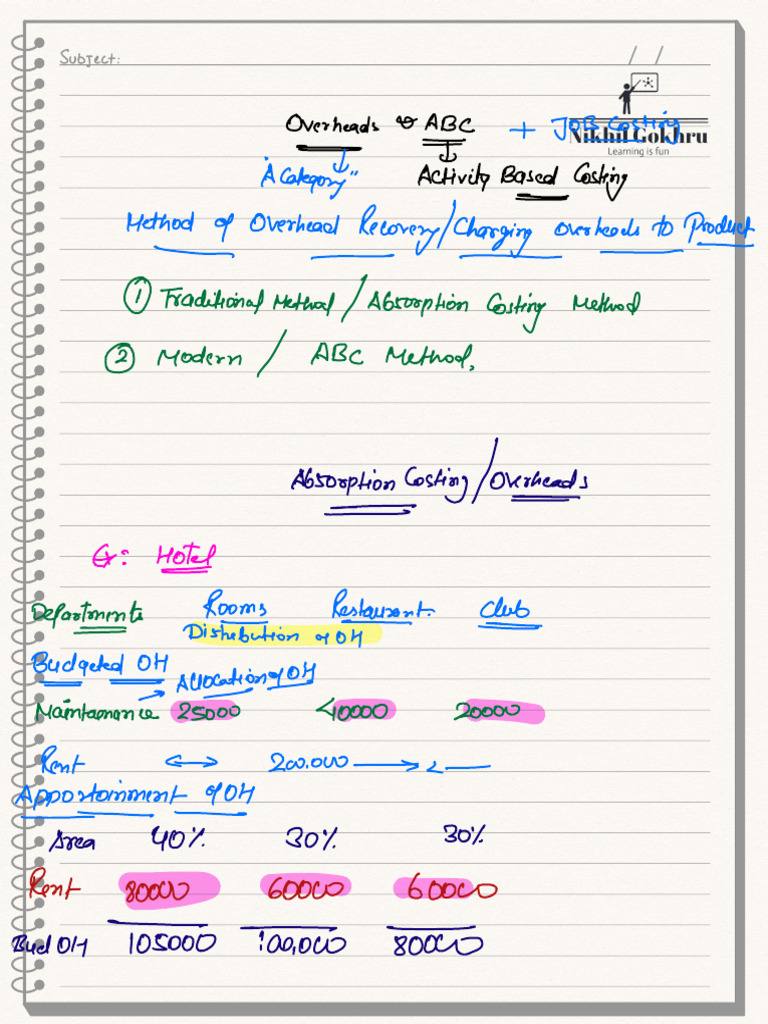 Subject:
/ /
Overheads & ABC + JOB Costing
Nikhil Gokhru
Learning is fun
"A Category" Activity Based Costing
Method of Overhead Recovery/Charging overheads to Product
① Traditional Method / Absorption Costing Method
② Modern / ABC Method.
Absorption Costing / Overheads
G: Hotel
Departments Rooms Restaurant. Club
Distribution of OH
Budgeted OH
Allocation of OH
Maintainance 25000 40000 20000
Rent 200,000
Apportainment of OH
Area 40% 30% 30%
Rent 80000 60000 60000
Bud OH 105000 100,000 80000